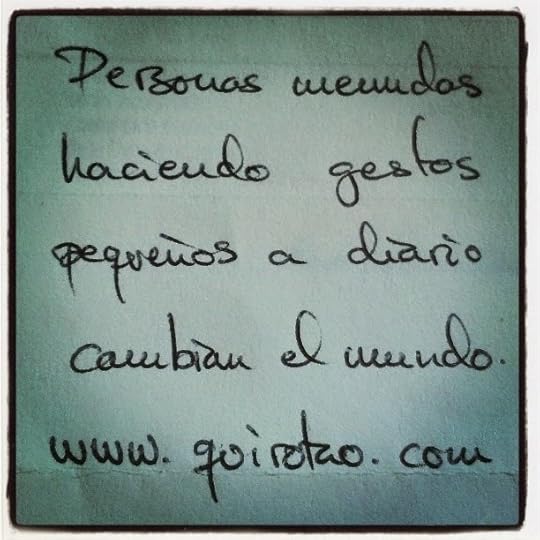 Personas menudas
haciendo gestos
pequeños a diario
cambian el mundo.
www.quirotao.com